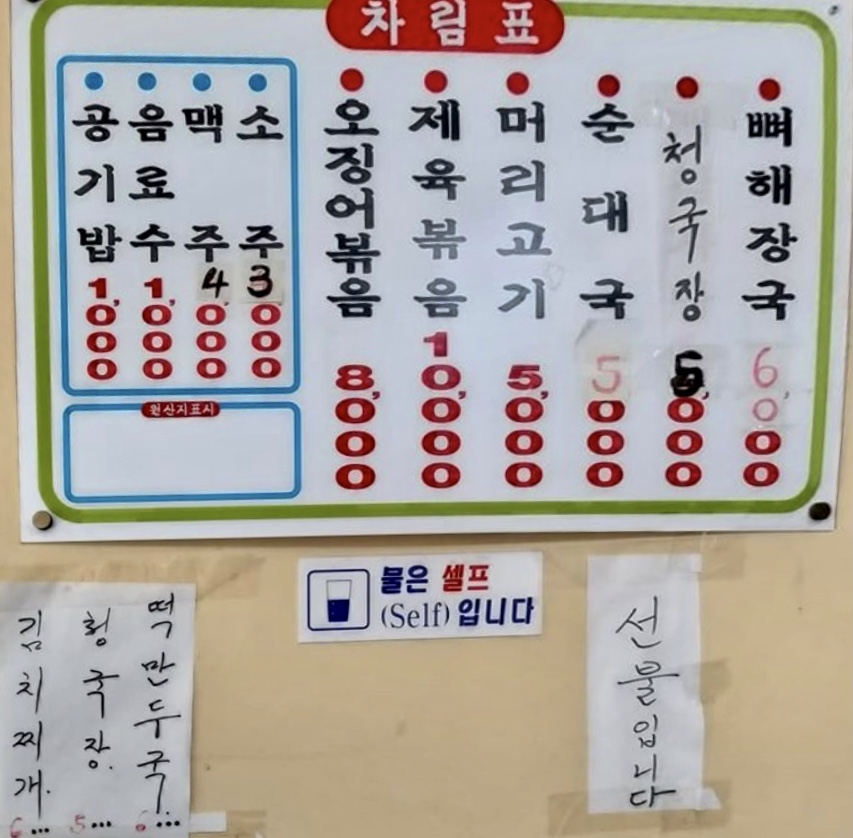 차림표
공기밥 1,000
음료수 1,000
맥주 4,000
소주 3,000
오징어볶음 8,000
제육볶음 10,000
머리고기 5,000
순대국 5,000
청국장 5,000
뼈해장국 6,000
원산지표시
물은 셀프
(Self)입니다
김치찌개. 6...
청국장. 5...
떡만두국. 6...
선불입니다